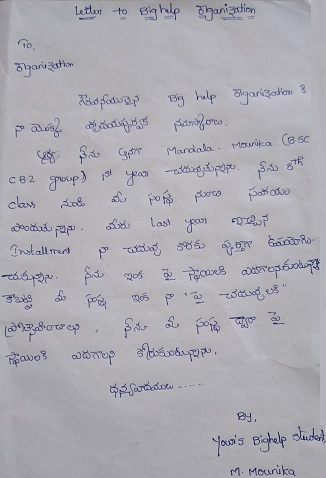 Letter to Big help Organization
To,
Organization
గౌరవనీయులైన Big help Organization కి
నా యొక్క హృదయపూర్వక నమస్కారాలు.
నేను అనగా Mandala. Mounika (BSC
CBZ group) 1st year చదువుతున్నాను. నేను
class నుండి మీ సంస్థ నుండి సహాయం
పొందుతున్నాను. మీరు last year ఇచ్చిన
Installment నా చదువు కొరకు పూర్తిగా ఉపయోగిం-
చుకున్నాను. నేను ఇంక పై స్థాయికి ఎదగాలనుకుంటున్నాను
కాబట్టి మీ సంస్థ ఇంక నా "పై చదువులకి"
ప్రోత్సాహించాలి, నేను మీ సంస్థ ద్వారా పై
స్థాయికి ఎదగాలని కోరుకుంటున్నాను.
ధన్యవాదములు ......
By,
Your's Bighelp student,
M. Mounika